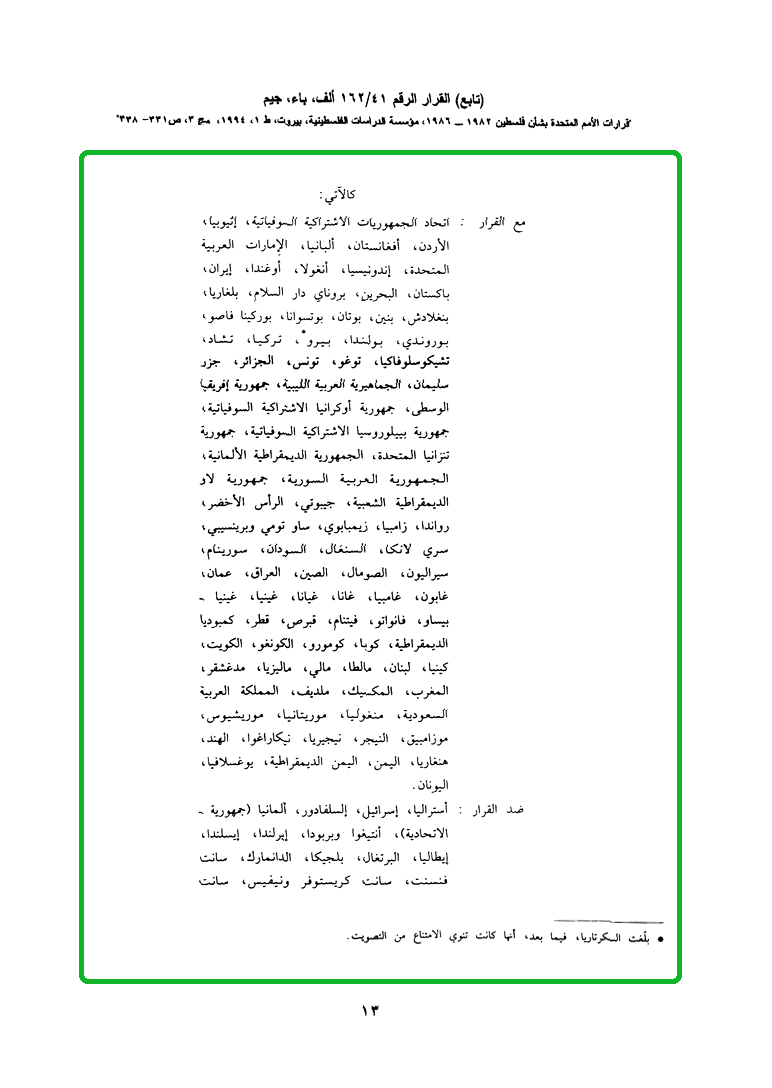 (تابع) القرار الرقم ١٦٢/٤١ ألف، باء، جيم
"قرارات الأمم المتحدة بشأن فلسطين ١٩٨٢ ــ ١٩٨٦، مؤسسة الدراسات الفلسطينية، بيروت، ط ١، ١٩٩٤، مج ٣، ص٣٣١- ٣٣٨"
كالآتي:
مع القرار : اتحاد الجمهوريات الاشتراكية السوفياتية، إثيوبيا،
الأردن، أفغانستان، ألبانيا، الإمارات العربية
المتحدة، إندونيسيا، أنغولا، أوغندا، إيران،
باكستان، البحرين، بروناي دار السلام، بلغاريا،
بنغلادش، بنين، بوتان، بوتسوانا، بوركينا فاصو،
بوروندي، بولندا، بيرو*، تركيا، تشاد،
تشيكوسلوفاكيا، توغو، تونس، الجزائر، جزر
سليمان، الجماهيرية العربية الليبية، جمهورية إفريقيا
الوسطى، جمهورية أوكرانيا الاشتراكية السوفياتية،
جمهورية بييلوروسيا الاشتراكية السوفياتية، جمهورية
تنزانيا المتحدة، الجمهورية الديمقراطية الألمانية،
الجمهورية العربية السورية، جمهورية لاو
الديمقراطية الشعبية، جيبوتي، الرأس الأخضر،
رواندا، زامبيا، زيمبابوي، ساو تومي وبرينسيبي،
سري لانكا، السنغال، السودان، سورينام،
سيراليون، الصومال، الصين، العراق، عمان،
غابون، غامبيا، غانا، غيانا، غينيا، غينيا ـ
بيساو، فانواتو، فيتنام، قبرص، قطر، كمبوديا
الديمقراطية، كوبا، كومورو، الكونغو، الكويت،
كينيا، لبنان، مالطا، مالي، ماليزيا، مدغشقر،
المغرب، المكسيك، ملديف، المملكة العربية
السعودية، منغوليا، موريتانيا، موريشيوس،
موزامبيق، النيجر، نيجيريا، نيكاراغوا، الهند،
هنغاريا، اليمن، اليمن الديمقراطية، يوغسلافيا،
اليونان.
ضد القرار : أستراليا، إسرائيل، إلسلفادور، ألمانيا (جمهورية ـ
الاتحادية)، أنتيغوا وبربودا، إيرلندا، إيسلندا،
إيطاليا، البرتغال، بلجيكا، الدانمارك، سانت
فنسنت، سانت كريستوفر ونيفيس، سانت
● بلّغت السكرتاريا، فيما بعد، أنها كانت تنوي الامتناع عن التصويت.
١٣